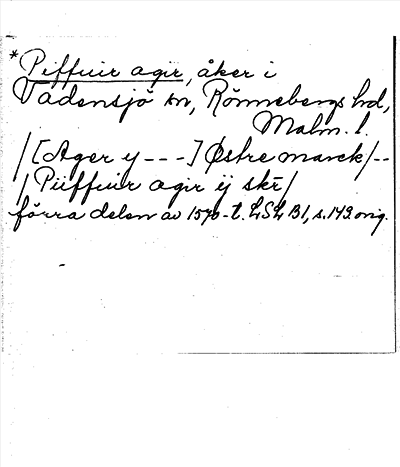 *Piffuir agir, åker i
Vadensjö sn, Rönnebergs hd,
Malm. l.
/[Ager y ---] Østre marck/--
/Piiffuir agir ij skr/
förra delen av 1570-t. LSLB1, s.143 orig.